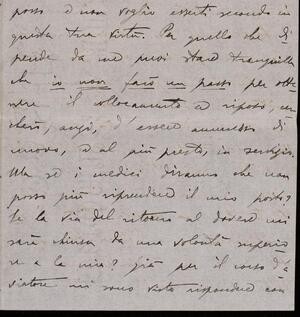 posso e non voglio esserti secondo in
questa tua virtù. Per quello che di
pende da me puoi stare tranquilla
che io non farò un passo per otte
nere il collocamento a riposo, cer
cherò, anzi, d'essere ammesso di
nuovo, e al più presto, in servizio.
Ma se i medici diranno che non
posso più riprendere il mio posto?
Se la via del ritorno al dovere mi
sarà chiusa da una volontà superio
re a la mia? Già per il corso d'a
viatore mi sono visto rispondere con